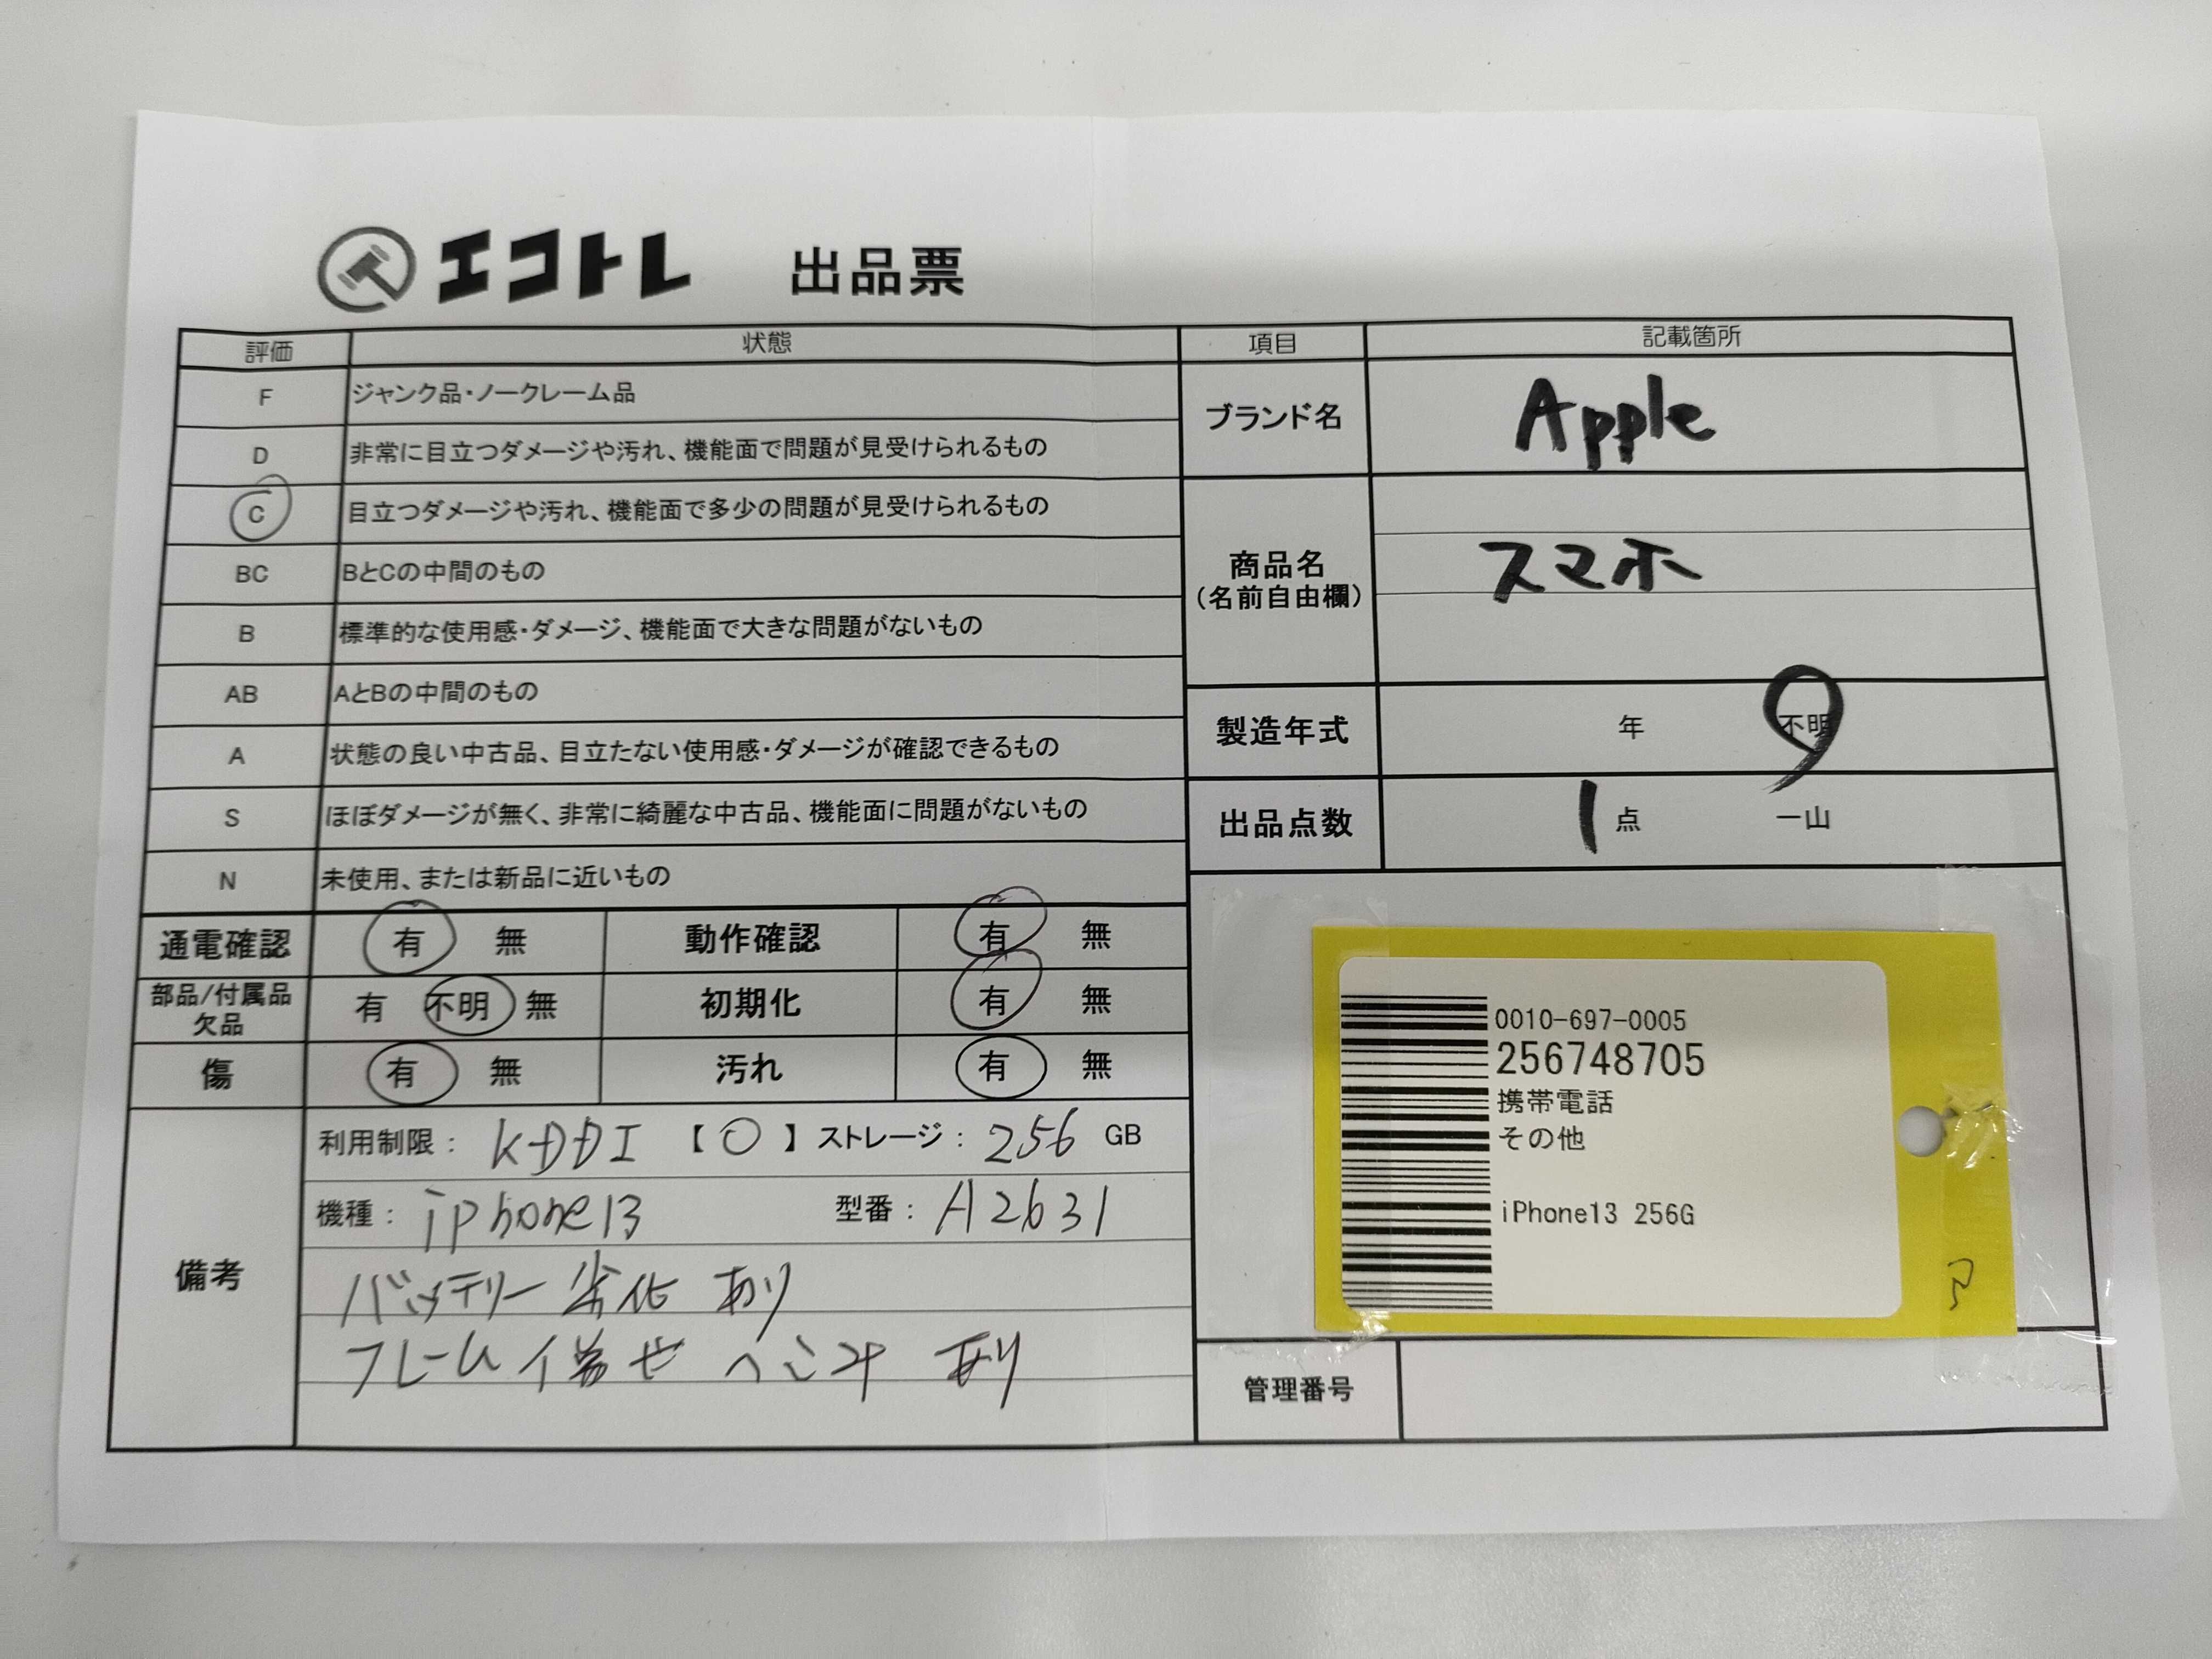 エコトレ 出品票
評価 状態
F ジャンク品・ノークレーム品
D 非常に目立つダメージや汚れ、機能面で問題が見受けられるもの
C 目立つダメージや汚れ、機能面で多少の問題が見受けられるもの
BC BとCの中間のもの
B 標準的な使用感・ダメージ、機能面で大きな問題がないもの
AB AとBの中間のもの
A 状態の良い中古品、目立たない使用感・ダメージが確認できるもの
S ほぼダメージが無く、非常に綺麗な中古品、機能面に問題がないもの
N 未使用、または新品に近いもの
通電確認 有 無 動作確認 有 無
部品/付属品 欠品 有 不明 無 初期化 有 無
傷 有 無 汚れ 有 無
備考
利用制限: KDDI 【〇】 ストレージ: 256 GB
機種: iphone13 型番: A2631
バッテリー劣化 あり
フレーム ヘコみ あり
項目 記載箇所
ブランド名 Apple
商品名 スマホ
(名前自由欄)
製造年式 年 不明
出品点数 1点 一山
0010-697-0005
256748705
携帯電話
その他
iPhone13 256G
管理番号